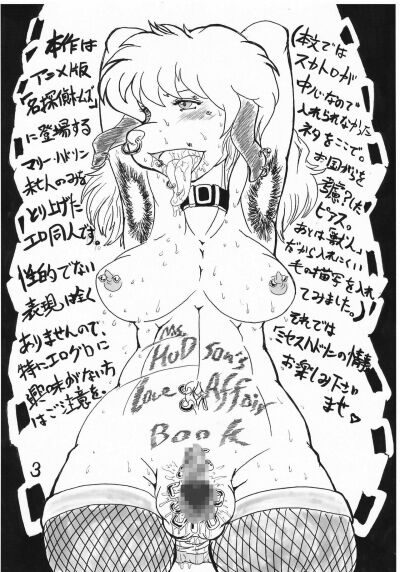 (本文では
スカトロが
中心なので
入れられなかった
ネタをここで。
お国がらを
考慮?した
ピアス。
あとは「獣人」
だから入れにくい
毛の描写を入れ
てみました。
それでは
「ミセスハドソンの情事」
お楽しみ下さい
ませ♡
本作は
アニメ版
「名探偵ホームズ」
に登場する
マリー・ハドソン
未亡人のみを
とり上げた
エロ同人です。
性的でない
表現は全く
ありませんので、
特にエログロに
興味がない方
はご注意を。
Ms.
HuDson's
Love Affair
Book
3